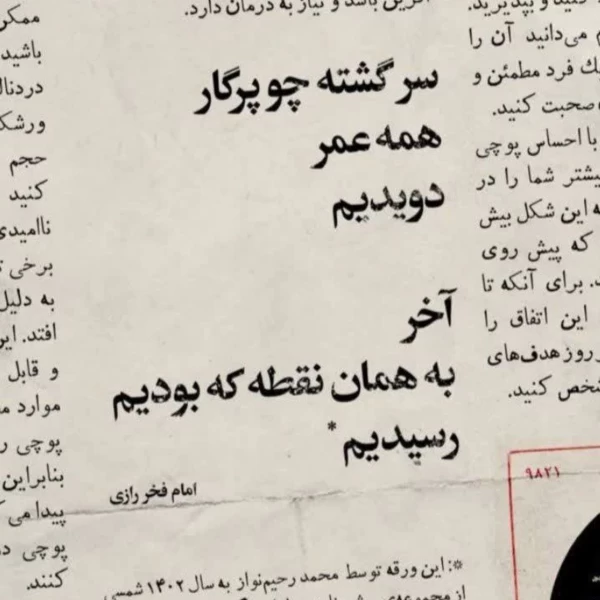 آفرین باشد و نیاز به درمان دارد.
سرگشته چو پرگار
همه عمر
دویدیم
آخر
به همان نقطه که بودیم
رسیدیم*
امام فخر رازی
*: این ورقه توسط محمد رحیم‌نواز به سال ۱۴۰۲ شمسی
و بپذیرید.
می‌دانید آن را
فرد مطمئن و
صحبت کنید.
با احساس پوچی
شما را در
این شکل بیش
که پیش روی
برای آنکه تا
این اتفاق را
روز هدف‌های
کنید.
۹۸۲۱
باشید
حجم
کنید
ناامیدی
برخی
به دلیل
افتد.
و قابل
موارد
پوچی
بنابراین
پیدا می
پوچی
کنند.